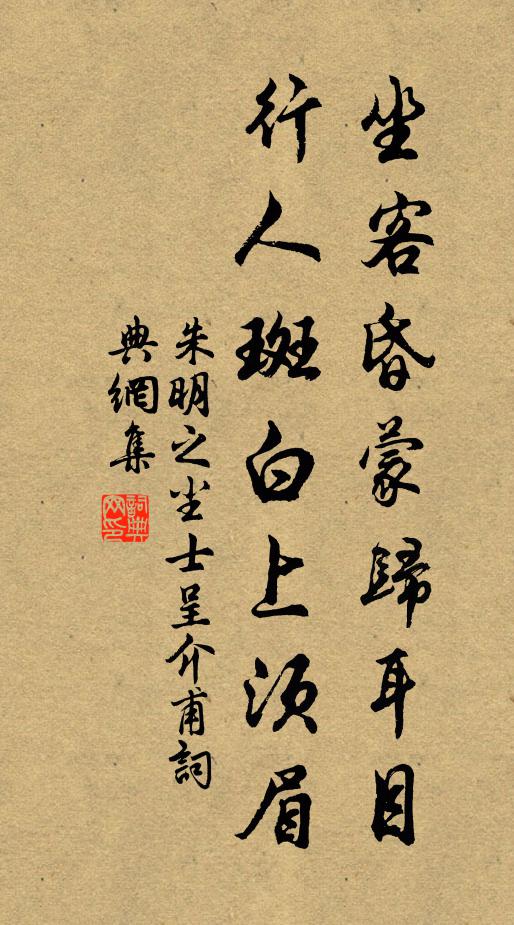 坐客昏蒙歸耳目
行人斑白上須眉
朱明之尘土呈介甫詞
典網集
詞典
网印